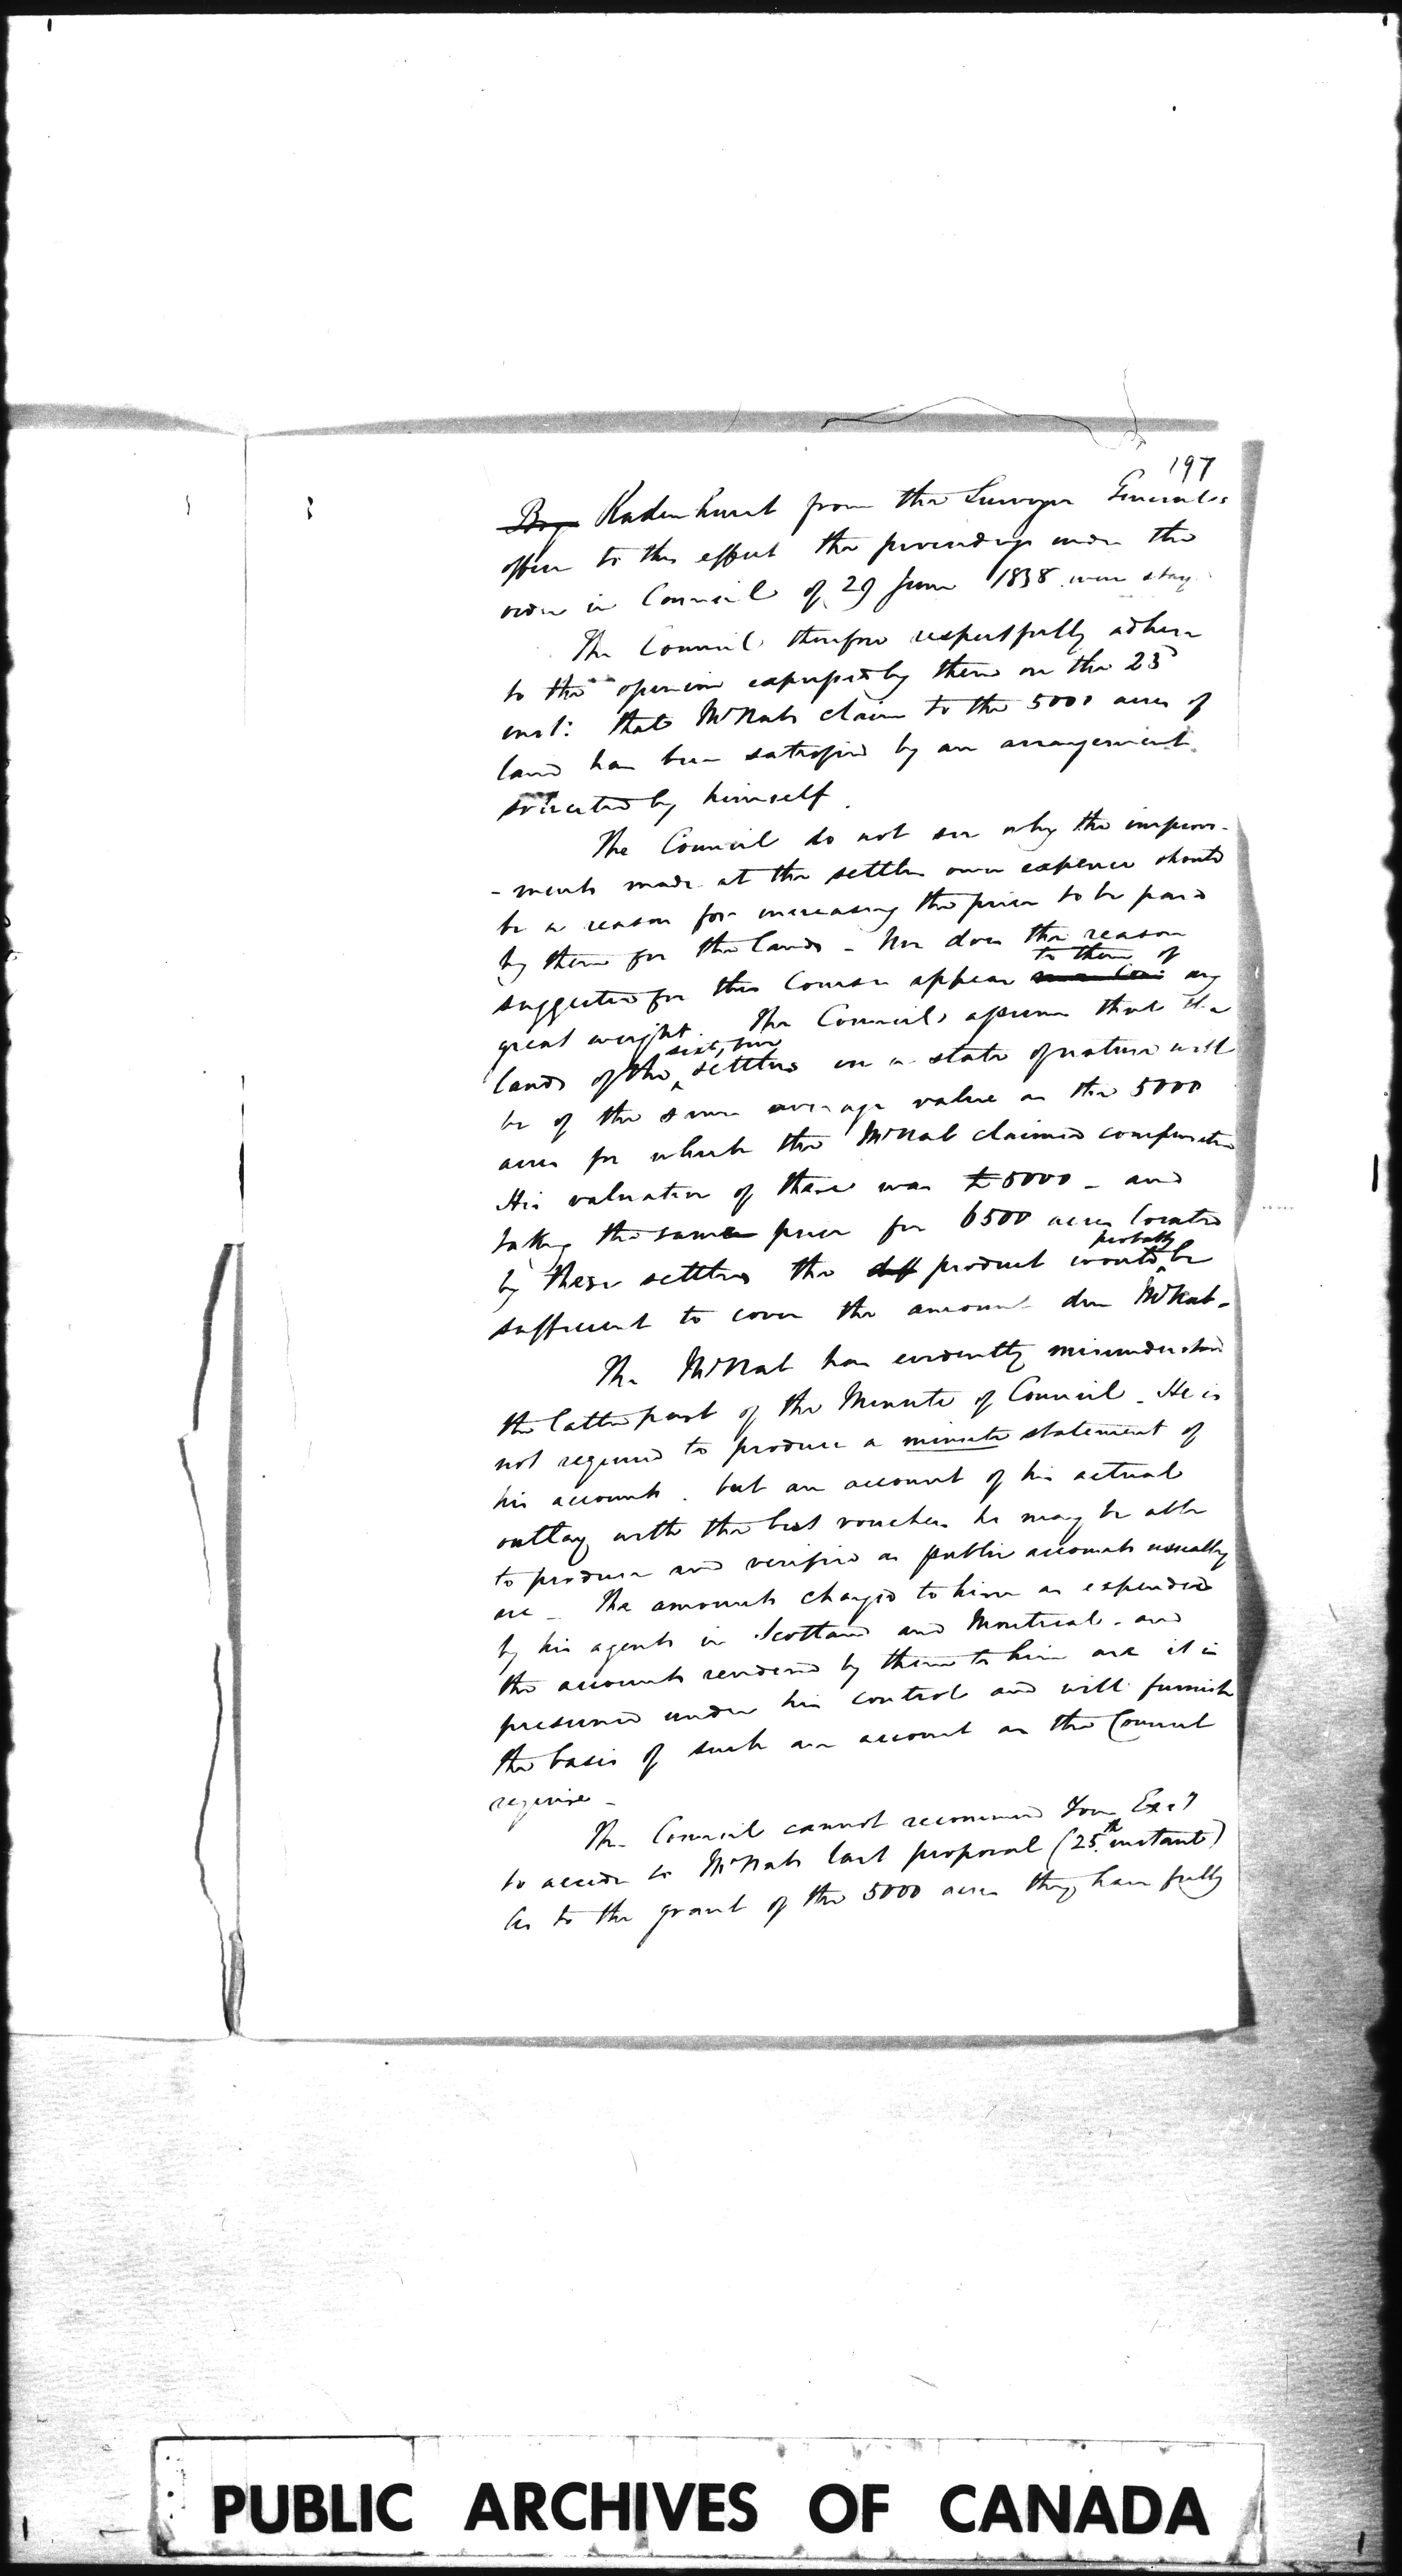 197
Radenhurst from the Surveyor Generals
office to this effect the proceedings under the
order in Council of 29 June 1838 were stay
The Council therefore respectfully adhere
to the opinion expressed by them on the 23d
inst: that McNabs claim to the 5000 acres of
land has been satisfied by an arrangement
solicited by himself.
The Council do not see why the improve-
-ments made at the settlers own expence should
be a reason for increasing the price to be paid
by them for the lands - Nor does the reason
suggested for this course appear to them of any
great weight. The Council assume that the
lands of the sixty five settlers in a state of nature will
be of the same average value as the 5000
acres for which the McNab claimed compensation
His valuation of these was £5000 - and
taking the same price for 6500 acres located
by these settlers the product would probably be
sufficient to cover the amount due McNab -
The McNab has evidently misunderstood
the latter part of the Minute of Council - He is
not required to produce a minute statement of
his accounts. but an account of his actual
outlay with the best vouchers he may be able
to produce and verified as public accounts usually
are - The amounts charged to him as expended
by his agents in Scotland and Montreal - and
the accounts rendered by them to him are it is
presumed under his control and will furnish
the basis of such an account as the Council
require -
The Council cannot recommend Your Excy
to accede to McNabs last proposal (25th instant)
As to the grant of the 5000 acres they have fully
PUBLIC ARCHIVES OF CANADA